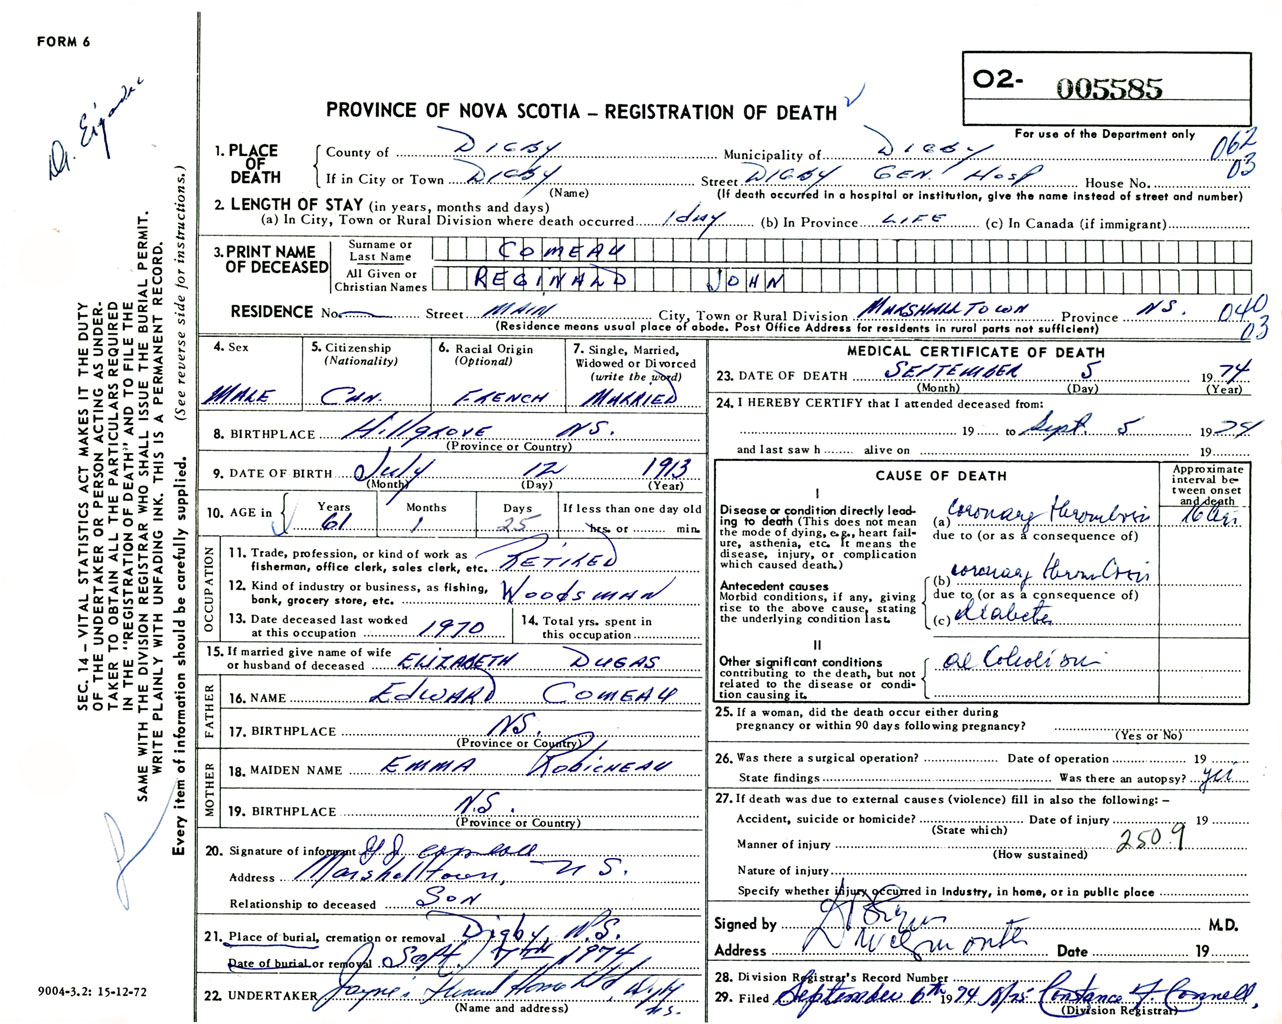 FORM 6
O2- 005585
PROVINCE OF NOVA SCOTIA – REGISTRATION OF DEATH
For use of the Department only
062
03
1. PLACE OF DEATH
County of DIGBY Municipality of DIGBY
If in City or Town DIGBY Street DIGBY GEN. HOSP House No.
(Name) (If death occurred in a hospital or institution, give the name instead of street and number)
2. LENGTH OF STAY (in years, months and days)
(a) In City, Town or Rural Division where death occurred 1 day (b) In Province LIFE (c) In Canada (if immigrant)
3. PRINT NAME OF DECEASED
Surname or Last Name COMEAU
All Given or Christian Names REGINALD JOHN
RESIDENCE No. Street MAIN City, Town or Rural Division MARSHALLTOWN Province NS.
040
03
(Residence means usual place of abode. Post Office Address for residents in rural parts not sufficient)
4. Sex
MALE
5. Citizenship (Nationality)
CAN.
6. Racial Origin (Optional)
FRENCH
7. Single, Married, Widowed or Divorced (write the word)
MARRIED
8. BIRTHPLACE Hillgrove NS.
(Province or Country)
9. DATE OF BIRTH July 12 1913
(Month) (Day) (Year)
10. AGE in Years Months Days If less than one day old
61 1 25 hrs. or min.
OCCUPATION
11. Trade, profession, or kind of work as fisherman, office clerk, sales clerk, etc. RETIRED
12. Kind of industry or business, as fishing, bank, grocery store, etc. WOODSMAN
13. Date deceased last worked at this occupation 1970
14. Total yrs. spent in this occupation
15. If married give name of wife or husband of deceased ELIZABETH DUGAS
FATHER
16. NAME EDWARD COMEAU
17. BIRTHPLACE NS.
(Province or Country)
MOTHER
18. MAIDEN NAME EMMA ROBICHEAU
19. BIRTHPLACE N.S.
(Province or Country)
20. Signature of informant
Address Marshalltown, N S.
Relationship to deceased SON
21. Place of burial, cremation or removal Digby, N.S.
Date of burial or removal Sept. 7TH 1974
22. UNDERTAKER Jayne's Funeral Home Ltd, Digby N.S.
(Name and address)
MEDICAL CERTIFICATE OF DEATH
23. DATE OF DEATH SEPTEMBER 5 1974
(Month) (Day) (Year)
24. I HEREBY CERTIFY that I attended deceased from:
19 to Sept. 5 1974
and last saw h alive on 19
CAUSE OF DEATH
Approximate interval between onset and death
I
Disease or condition directly leading to death (This does not mean the mode of dying, e.g., heart failure, asthenia, etc. It means the disease, injury, or complication which caused death.)
(a) coronary thrombosis
due to (or as a consequence of)
Antecedent causes
Morbid conditions, if any, giving rise to the above cause, stating the underlying condition last.
(b) coronary thrombosis
due to (or as a consequence of)
(c) diabetes
II
Other significant conditions contributing to the death, but not related to the disease or condition causing it.
alcoholism
25. If a woman, did the death occur either during pregnancy or within 90 days following pregnancy?
(Yes or No)
26. Was there a surgical operation? Date of operation 19
State findings Was there an autopsy? yes
27. If death was due to external causes (violence) fill in also the following: –
Accident, suicide or homicide? Date of injury 19
(State which)
Manner of injury 250.9
(How sustained)
Nature of injury
Specify whether injury occurred in Industry, in home, or in public place
Signed by M.D.
Address Date 19
28. Division Registrar's Record Number
29. Filed September 6th 1974 Mrs Constance F. Connell,
(Division Registrar)
SEC. 14 – VITAL STATISTICS ACT MAKES IT THE DUTY
OF THE UNDERTAKER OR PERSON ACTING AS UNDER-
TAKER TO OBTAIN ALL THE PARTICULARS REQUIRED
IN THE "REGISTRATION OF DEATH" AND TO FILE THE
SAME WITH THE DIVISION REGISTRAR WHO SHALL ISSUE THE BURIAL PERMIT.
WRITE PLAINLY WITH UNFADING INK. THIS IS A PERMANENT RECORD.
Every item of information should be carefully supplied. (See reverse side for instructions.)
9004-3.2: 15-12-72